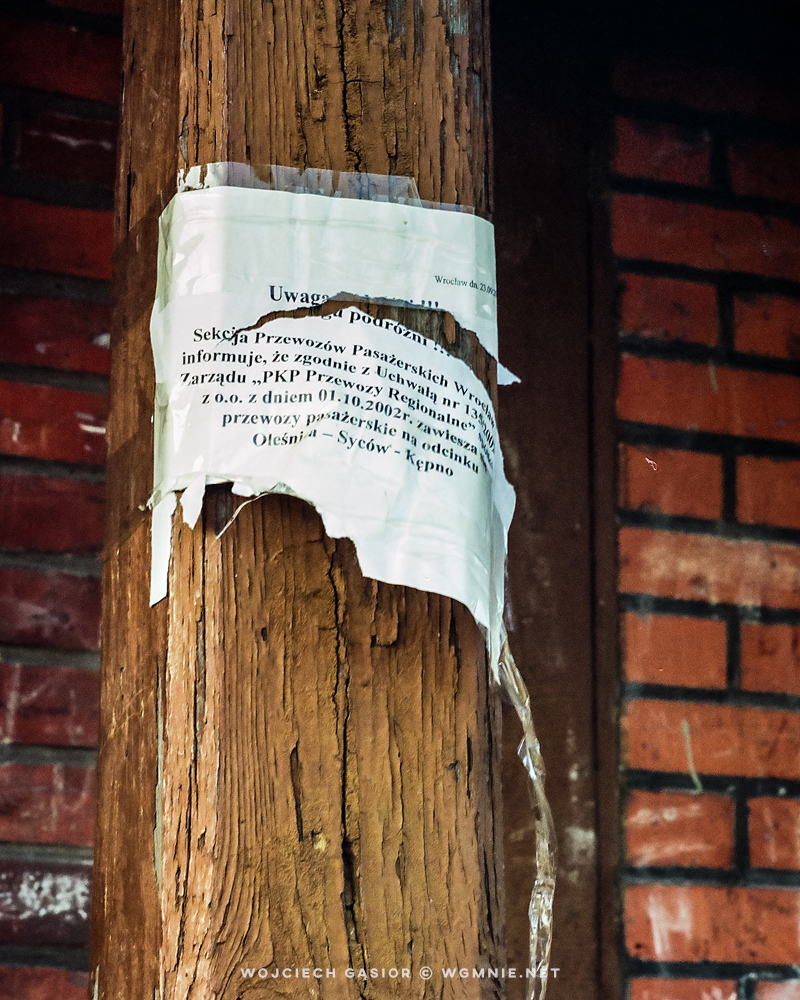 Wrocław dn. 23.09.
Uwaga !!!
podróżni
Sekcja Przewozów Pasażerskich Wrocła
informuje, że zgodnie z Uchwałą nr
Zarządu „PKP Przewozy Regionalne”
z o.o. z dniem 01.10.2002r. zawiesza
przewozy pasażerskie na odcinku
Oleśnica – Syców - Kępno
WOJCIECH GASIOR © WGMNIE.NET